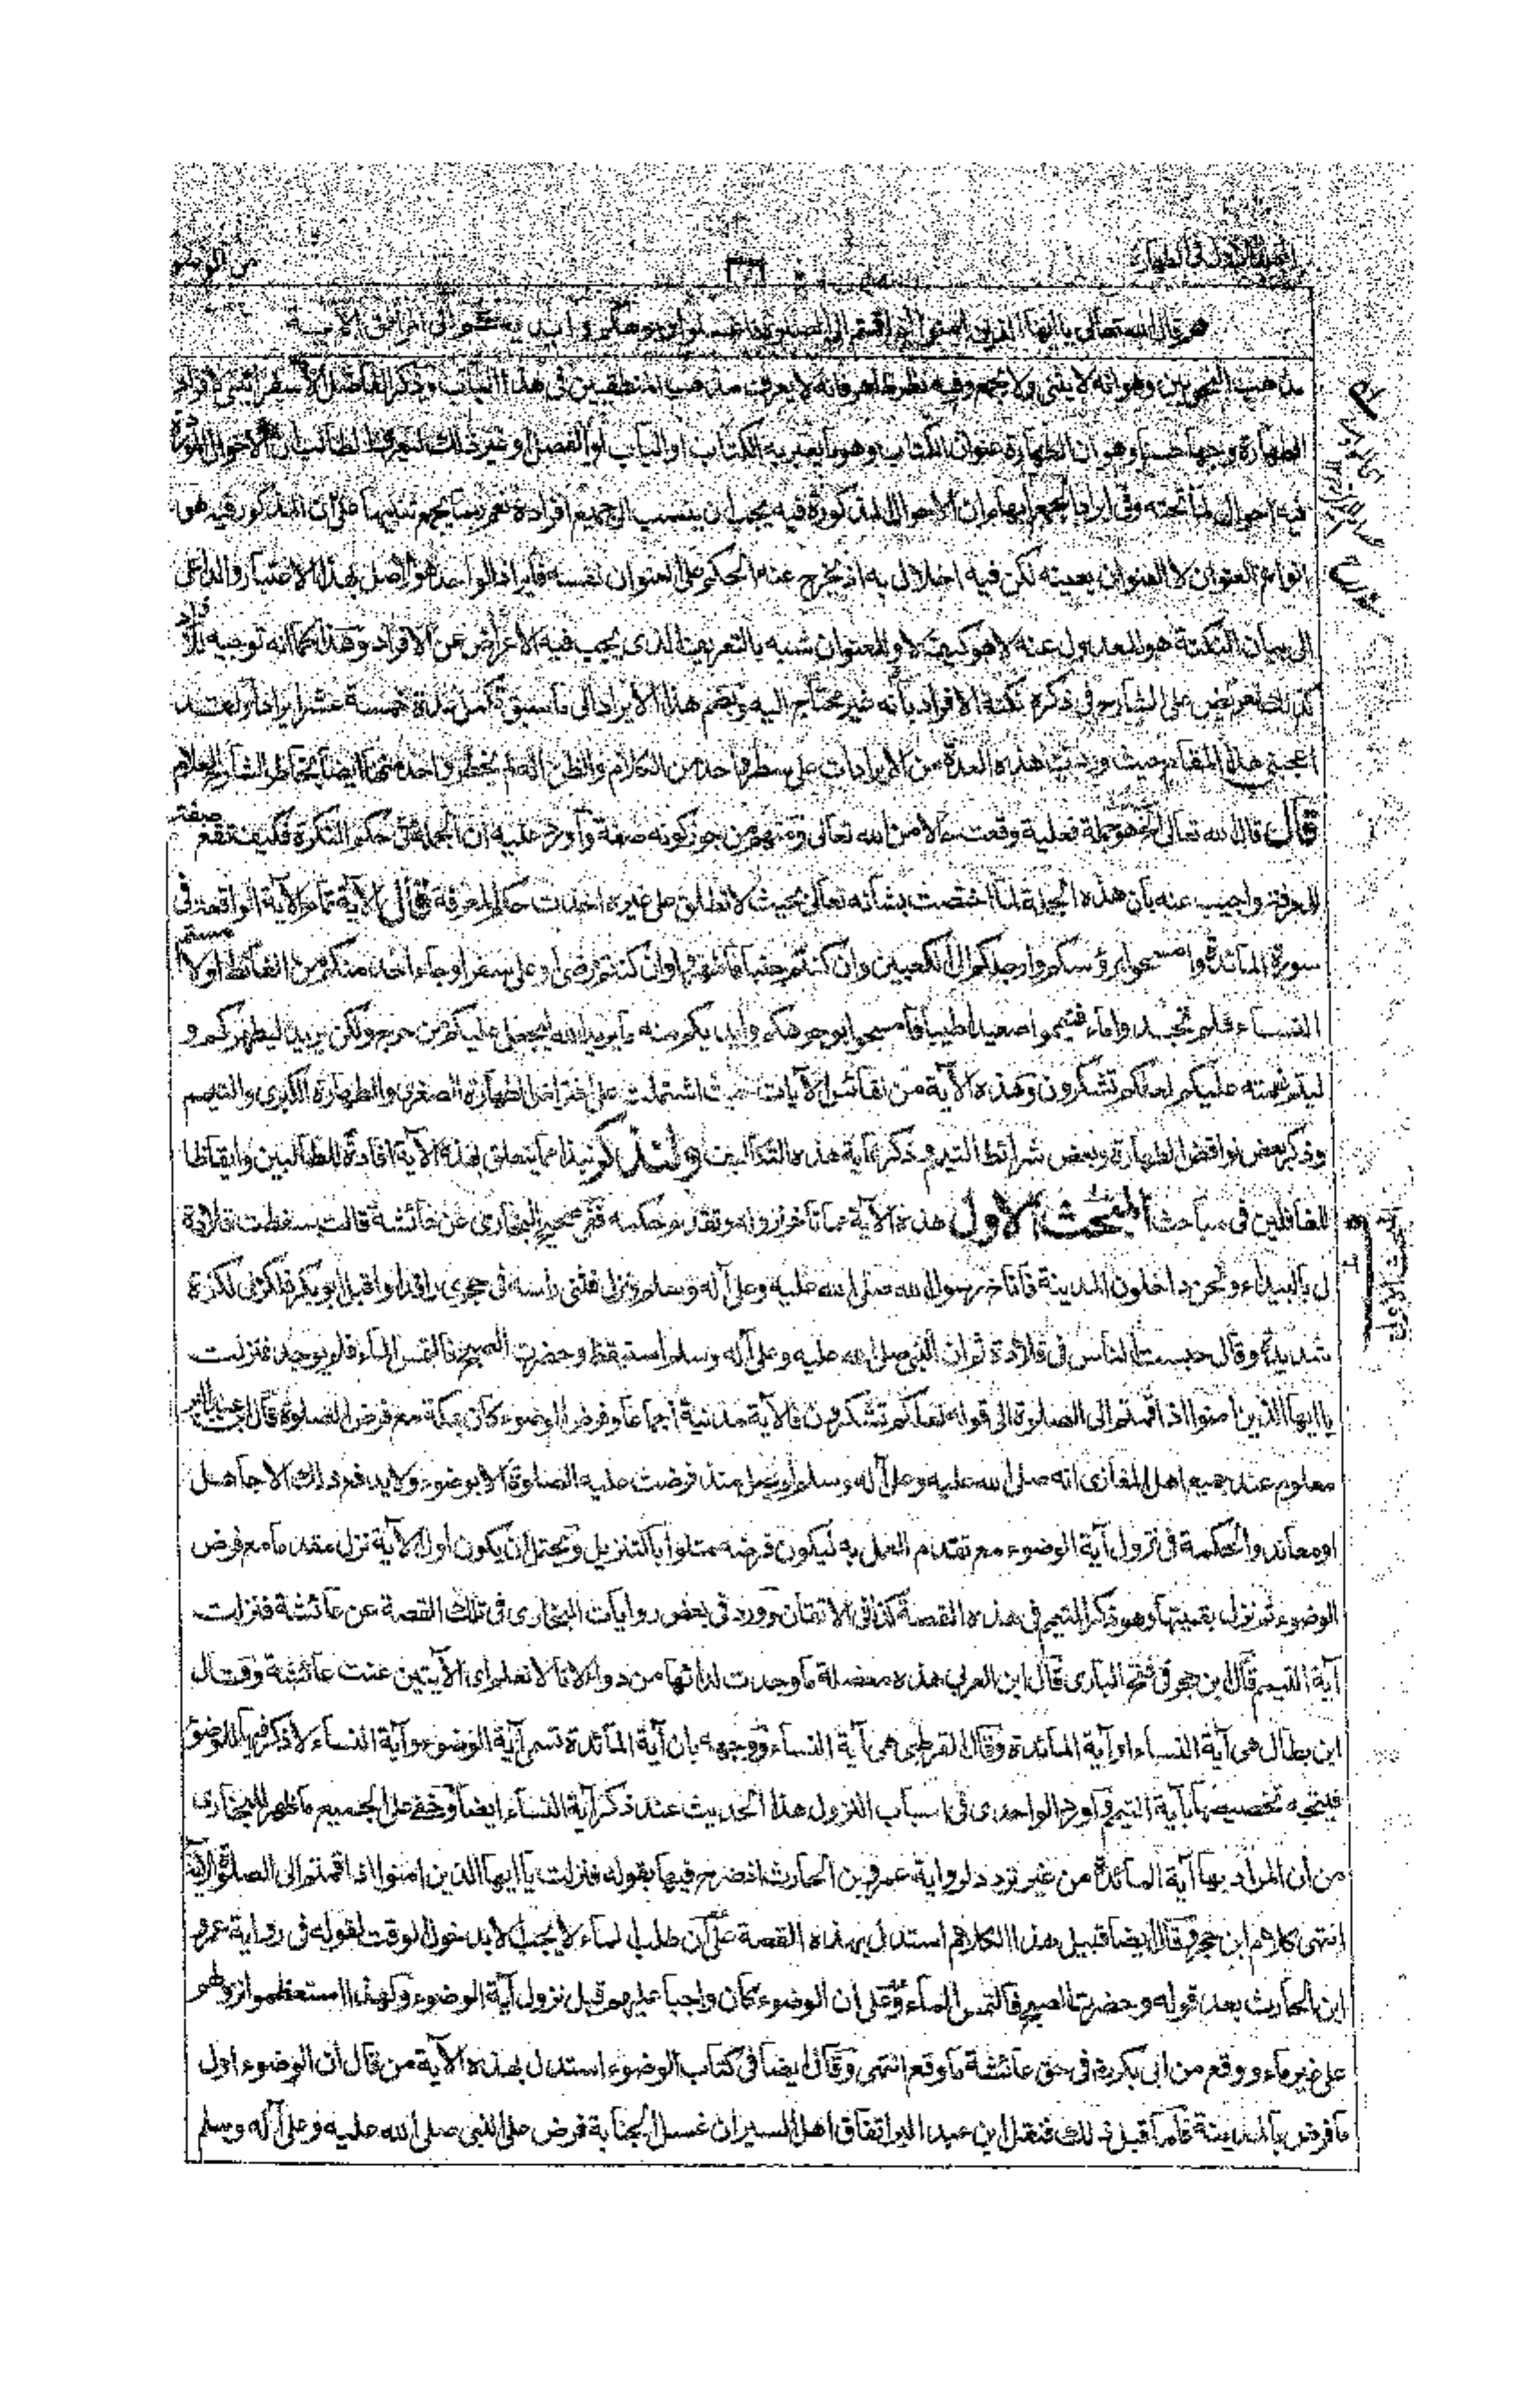 المجلد الاول فى الطهارة
٣٦
من الوضوء
قال الله تعالى يا ايها الذين امنوا اذا قمتم الى الصلوة فاغسلوا وجوهكم وايديكم الى المرافق الآية
مذهب النحويين وهو انه لا يثنى ولا يجمع وفيه نظر ظاهر فانه لا يعرف مذهب المنطقيين فى هذا الباب وذكر الفاضل الاسفرائينى لافراد
الطهارة وجها حسنا وهو ان الطهارة عنوان الكتاب وهو ما يعبر به الكتاب او الباب او الفصل او غير ذلك لتعرف الطالب ان الاحوال المذكورة
فيه احوال لما تحته وفى ايراد الجمع ايهام ان الاحوال المذكورة فيه يجب ان ينسب الى جميع افراده نعم ربما يجمع تنبيها على ان المذكور فيه هو
انواع العنوان لا العنوان بعينه لكن فيه اخلال به اذ يخرج عنه الحكم على العنوان نفسه فايراد الواحد هو الاصل بهذا الاعتبار والداعى
الى بيان النكتة هو المعدول عنه لا هو كيف لا والعنوان شبيه بالتعريف الذى يجب فيه الاعراض عن الافراد وهذا كما انه توجيه للافراد
كذلك تعريض على الشارح فى ذكره نكتة الافراد بانه غير محتاج اليه وبضم هذا الايراد الى ما سبق كمل عدة خمسة عشر ايرادا ولعمرى
اعجبنى هذا المقام حيث وردت هذه العدة من الايرادات على سطر واحد من الكلام والظن انه لم يخطر واحد منها ايضا بخاطر الشارح العلام
قال قال الله تعالى الخ هو جملة فعلية وقعت حالا من الله تعالى ومنهم من جوز كونه صفة واورد عليه ان الجملة فى حكم النكرة فكيف تقع صفة
للمعرفة واجيب عنه بان هذه الجملة لما اختصت بشانه تعالى بحيث لا تطلق على غيره اخذت حكم المعرفة قال الآية تمام الآية الواقعة فى
سورة المائدة وامسحوا برؤسكم وارجلكم الى الكعبين وان كنتم جنبا فاطهروا وان كنتم مرضى او على سفر او جاء احد منكم من الغائط او لامستم
النساء فلم تجدوا ماء فتيمموا صعيدا طيبا فامسحوا بوجوهكم وايديكم منه ما يريد الله ليجعل عليكم من حرج ولكن يريد ليطهركم و
ليتم نعمته عليكم لعلكم تشكرون وهذه الآية من نفائس الآيات حيث اشتملت على افتراض الطهارة الصغرى والطهارة الكبرى والتيمم
وذكر بعض نواقض الطهارة وبعض شرائط التيمم وذكر غاية هذه التكاليف ولنذكر نبذا مما يتعلق بهذه الآية افادة للطالبين وايقاظا
للغافلين فى مباحث المبحث الاول هذه الآية مما تاخر نزوله وتقدم حكمه ففى صحيح البخارى عن عائشة قالت سقطت قلادة
لى بالبيداء ونحن داخلون المدينة فاناخ رسول الله صلى الله عليه وعلى آله وسلم ونزل فثنى رأسه فى حجرى راقدا واقبل ابو بكر فلكزنى لكزة
شديدة وقال حبست الناس فى قلادة ثم ان النبى صلى الله عليه وعلى آله وسلم استيقظ وحضرت الصبح فالتمس الماء فلم يوجد فنزلت
يا ايها الذين امنوا اذا قمتم الى الصلوة الى قوله لعلكم تشكرون فالآية مدنية اجماعا وفرض الوضوء كان بمكة مع فرض الصلوة قال ابن عبد البر
معلوم عند جميع اهل المغازى انه صلى الله عليه وعلى آله وسلم لم يصل منذ فرضت عليه الصلوة الا بوضوء ولا يدفع ذلك الا جاهل
او معاند والحكمة فى نزول آية الوضوء مع تقدم العمل به ليكون فرضه متلوا بالتنزيل ويحتمل ان يكون اول الآية نزل مقدما مع فرض
الوضوء ثم نزل بقيتها وهو ذكر التيمم فى هذه القصة كذا فى الاتقان وورد فى بعض روايات البخارى فى تلك القصة عن عائشة فنزلت
آية التيمم قال ابن حجر فى فتح البارى قال ابن العربى هذه معضلة ما وجدت لدائها من دواء لانا لا نعلم اى الآيتين عنت عائشة وقال
ابن بطال هى آية النساء او آية المائدة وقال القرطبى هى آية النساء ووجهه بان آية المائدة تسمى آية الوضوء وآية النساء لا ذكر فيها للوضوء
فيتجه تخصيصها بآية التيمم واورد الواحدى فى اسباب النزول هذا الحديث عند ذكر آية النساء ايضا وخفى على الجميع ما ظهر للبخارى
من ان المراد بها آية المائدة من غير تردد لرواية عمرو بن الحارث اذ صرح فيها بقوله فنزلت يا ايها الذين امنوا اذا قمتم الى الصلوة الآية
انتهى كلام ابن حجر وقال ايضا قبيل هذا الكلام استدل بهذه القصة على ان طلب الماء لا يجب الا بدخول الوقت لقوله فى رواية عمرو
ابن الحارث بعد قوله وحضرت الصبح فالتمس الماء وعلى ان الوضوء كان واجبا عليهم قبل نزول آية الوضوء ولهذا استعظموا نزولهم
على غير ماء ووقع من ابى بكر فى حق عائشة ما وقع انتهى وقال ايضا فى كتاب الوضوء استدل بهذه الآية من قال ان الوضوء اول
ما فرض بالمدينة فاما قبل ذلك فنقل ابن عبد البر اتفاق اهل السير ان غسل الجنابة فرض على النبى صلى الله عليه وعلى آله وسلم
البحث الاول